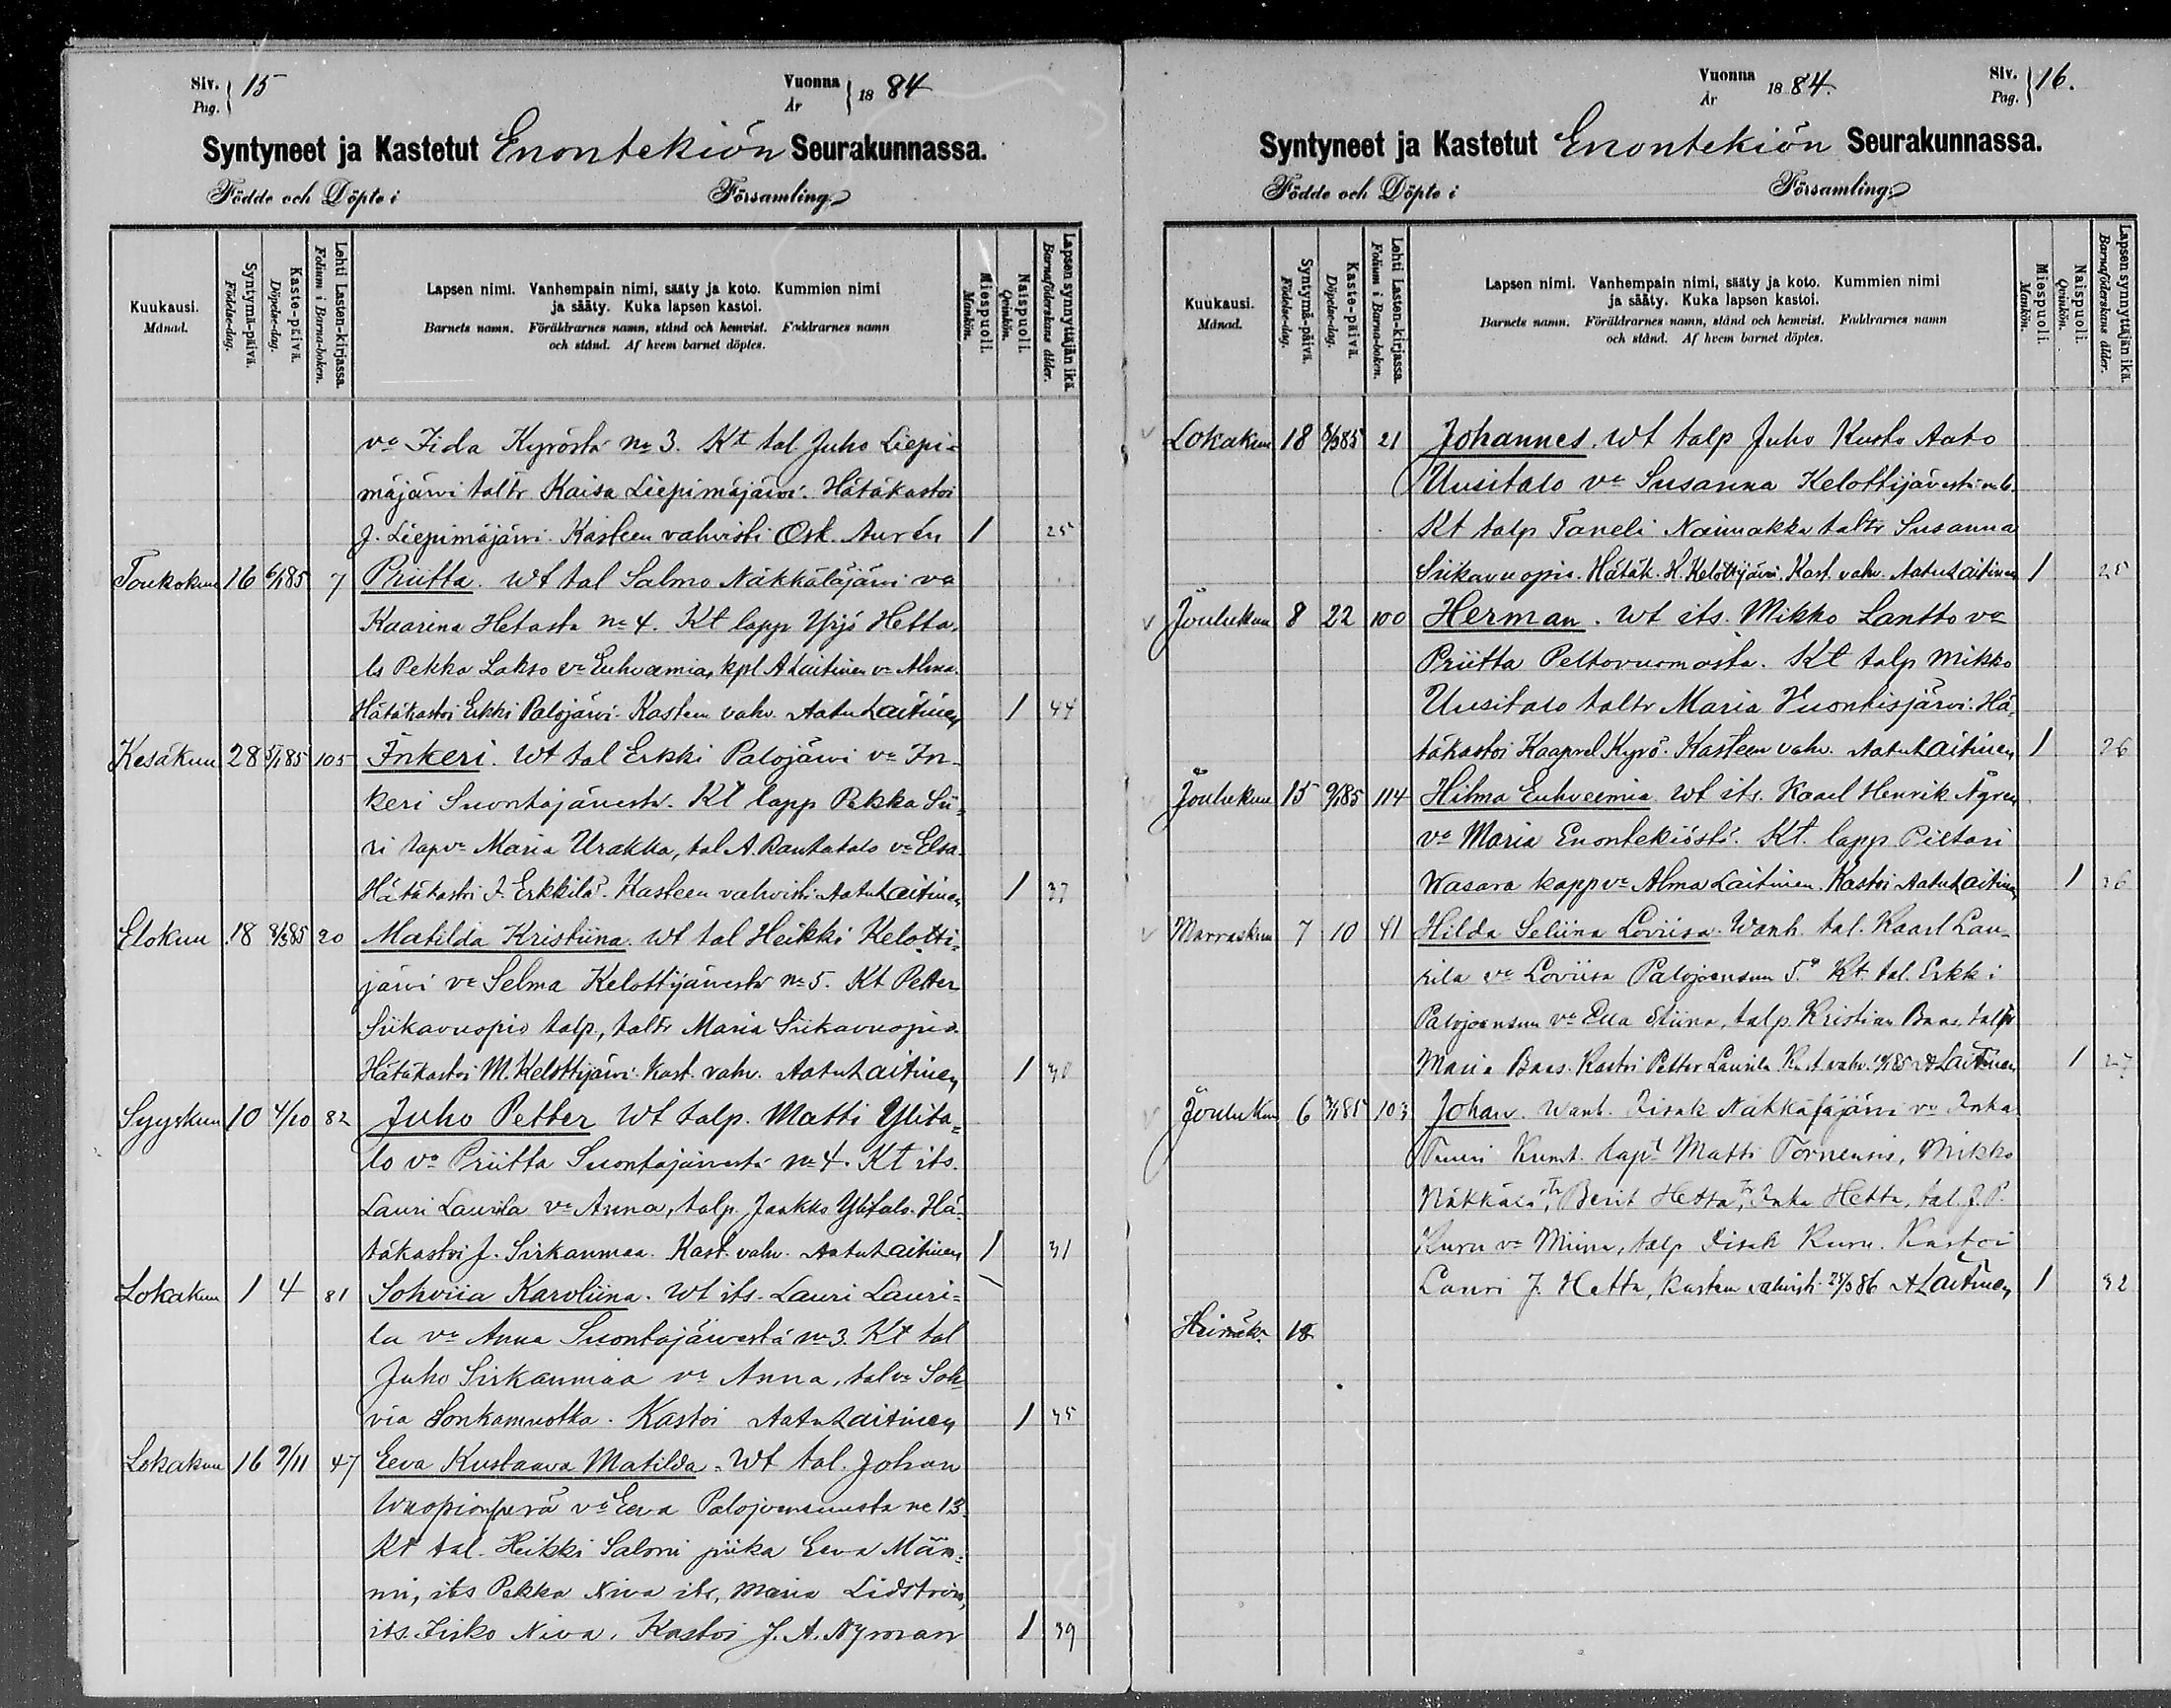 Siv. 15 Vuonna 1884
Pag. År
Syntyneet ja Kastetut Enontekiön Seurakunnassa.
Födde och Döpte i Församling
Kuukausi. Månad.
Syntymä-päivä. Födelse-dag.
Kaste-päivä. Döpelse-dag.
Lehti Lasten-kirjassa. Folium i Barna-boken.
Lapsen nimi. Vanhempain nimi, sääty ja koto. Kummien nimi
ja sääty. Kuka lapsen kastoi.
Barnets namn. Föräldrarnes namn, stånd och hemvist. Faddrarnes namn
och stånd. Af hvem barnet döptes.
Miespuoli. Mankön.
Naispuoli. Qvinkön.
Lapsen synnyttäjän ikä. Barnaföderskans ålder.
vo Iida Kyröstä No 3. Kt tal. Juho Liepi=
mäjärvi taltr Kaisa Liepimäjärvi. Hätäkastoi
J. Liepimäjärvi. Kasteen vahvisti Osk. Aurén 1 25
Toukokuu 16 6/1 85 7 Priitta. Wt tal Salmo Näkkäläjärvi vo
Kaarina Hetasta No 4. Kt lapp Yrjö Hetta,
ls Pekka Lakso vo Euhvemia, kpl A Laitinen vo Alma.
Hätäkastoi Erkki Palojärvi. Kasteen vahv. Aatu Laitinen 1 44
Kesäkuu 28 5/1 85 105 Inkeri. Wt tal Erkki Palojärvi vo In-
keri Suontajärvestä. Kt lapp Pekka Sii-
ri lapvo Maria Urakka, tal A. Rautatalo vo Elsa.
Hätäkastoi I. Erkkilä. Kasteen vahvisti Aatu Laitinen 1 37
Elokuu 18 8/3 85 20 Matilda Kristiina. Wt tal Heikki Kelotti=
järvi vo Selma Kelottijärvestä No 5. Kt Petter
Siikavuopio talp, taltr Maria Siikavuopio.
Hätäkastoi M. Kelottijärvi. Kast. vahv. Aatu Laitinen 1 30
Syyskuu 10 4/10 82 Juho Petter Wt talp. Matti Ylita=
lo vo Priitta Suontajärvestä No 4. Kt its.
Lauri Laurila vo Anna, talp. Jaakko Ylitalo. Hä=
täkastoi J. Sirkanmaa. Kast. vahv. Aatu Laitinen 1 31
Lokakuu 1 4 81 Sohviia Karoliina. Wt its. Lauri Lauri=
la vo Anna Suontajärvestä No 3. Kt tal
Juho Sirkanmaa vo Anna, talvo Soh
via Sonkamuotka. Kastoi Aatu Laitinen 1 35
Lokakuu 16 9/11 47 Eeva Kustaava Matilda. Wt tal. Johan
Wuopionperä vo Eeva Palojoensuusta No 13
Kt tal. Heikki Salmi piika Eeva Män=
ni, its Pekka Niva its, Maria Lidström,
its. Iisko Niva. Kastoi J. A. Nyman 1 39
Vuonna 1884. Siv. 16.
År Pag.
Syntyneet ja Kastetut Enontekiön Seurakunnassa.
Födde och Döpte i Församling
Kuukausi. Månad.
Syntymä-päivä. Födelse-dag.
Kaste-päivä. Döpelse-dag.
Lehti Lasten-kirjassa. Folium i Barna-boken.
Lapsen nimi. Vanhempain nimi, sääty ja koto. Kummien nimi
ja sääty. Kuka lapsen kastoi.
Barnets namn. Föräldrarnes namn, stånd och hemvist. Faddrarnes namn
och stånd. Af hvem barnet döptes.
Miespuoli. Mankön.
Naispuoli. Qvinkön.
Lapsen synnyttäjän ikä. Barnaföderskans ålder.
Lokakuu 18 8/3 85 21 Johannes. Wt talp Juho Kusto Aato
Uusitalo vo Susanna Kelottijärvestä No 6.
Kt talp Taneli Naimakka taltr Susanna
Siikavuopio. Hätäk. H. Kelottijärvi. Kast. vahv. Aatu Laitinen 1 25
Joulukuu 8 22 100 Herman. Wt its. Mikko Lantto vo
Priitta Peltovuomasta. Kt talp Mikko
Uusitalo taltr Maria Vuontisjärvi. Hä,
täkastoi Kaaprel Kyrö. Kasteen vahv. Aatu Laitinen 1 26
Joulukuu 15 9/1 85 114 Hilma Euhveemia. Wt its. Kaarl Henrik Ågren
vo Maria Enontekiöstä. Kt. lapp Pietari
Wasara kappvo Alma Laitinen. Kastoi Aatu Laitinen 1 36
Marraskuu 7 10 41 Hilda Seliina Loviisa. Wanh. tal. Kaarl Lau-
rila vo Loviisa Palojoensuu 5. Kt. tal. Erkki
Palojoensuu vo Eva Stiina, talp. Kristian Baas, taltr
Maria Baas. Kastoi Petter Laurila Kast vahv. A Laitinen 1 27
Joulukuu 6 103 Johan. Wanh. Iisak Näkkäläjärvi vo Inka
Kumt. lapt Matti Tornensis, Mikko
Näkkälä, Tr Berit Hetta, Tr Inka Hetta, tal. J. P.
Kuru vo Miina, talp Iisak Kuru. Kastoi
Lauri J. Hetta, kasteen vahvisti 25/3 86 A Laitinen 1 32
Heinäk. 18